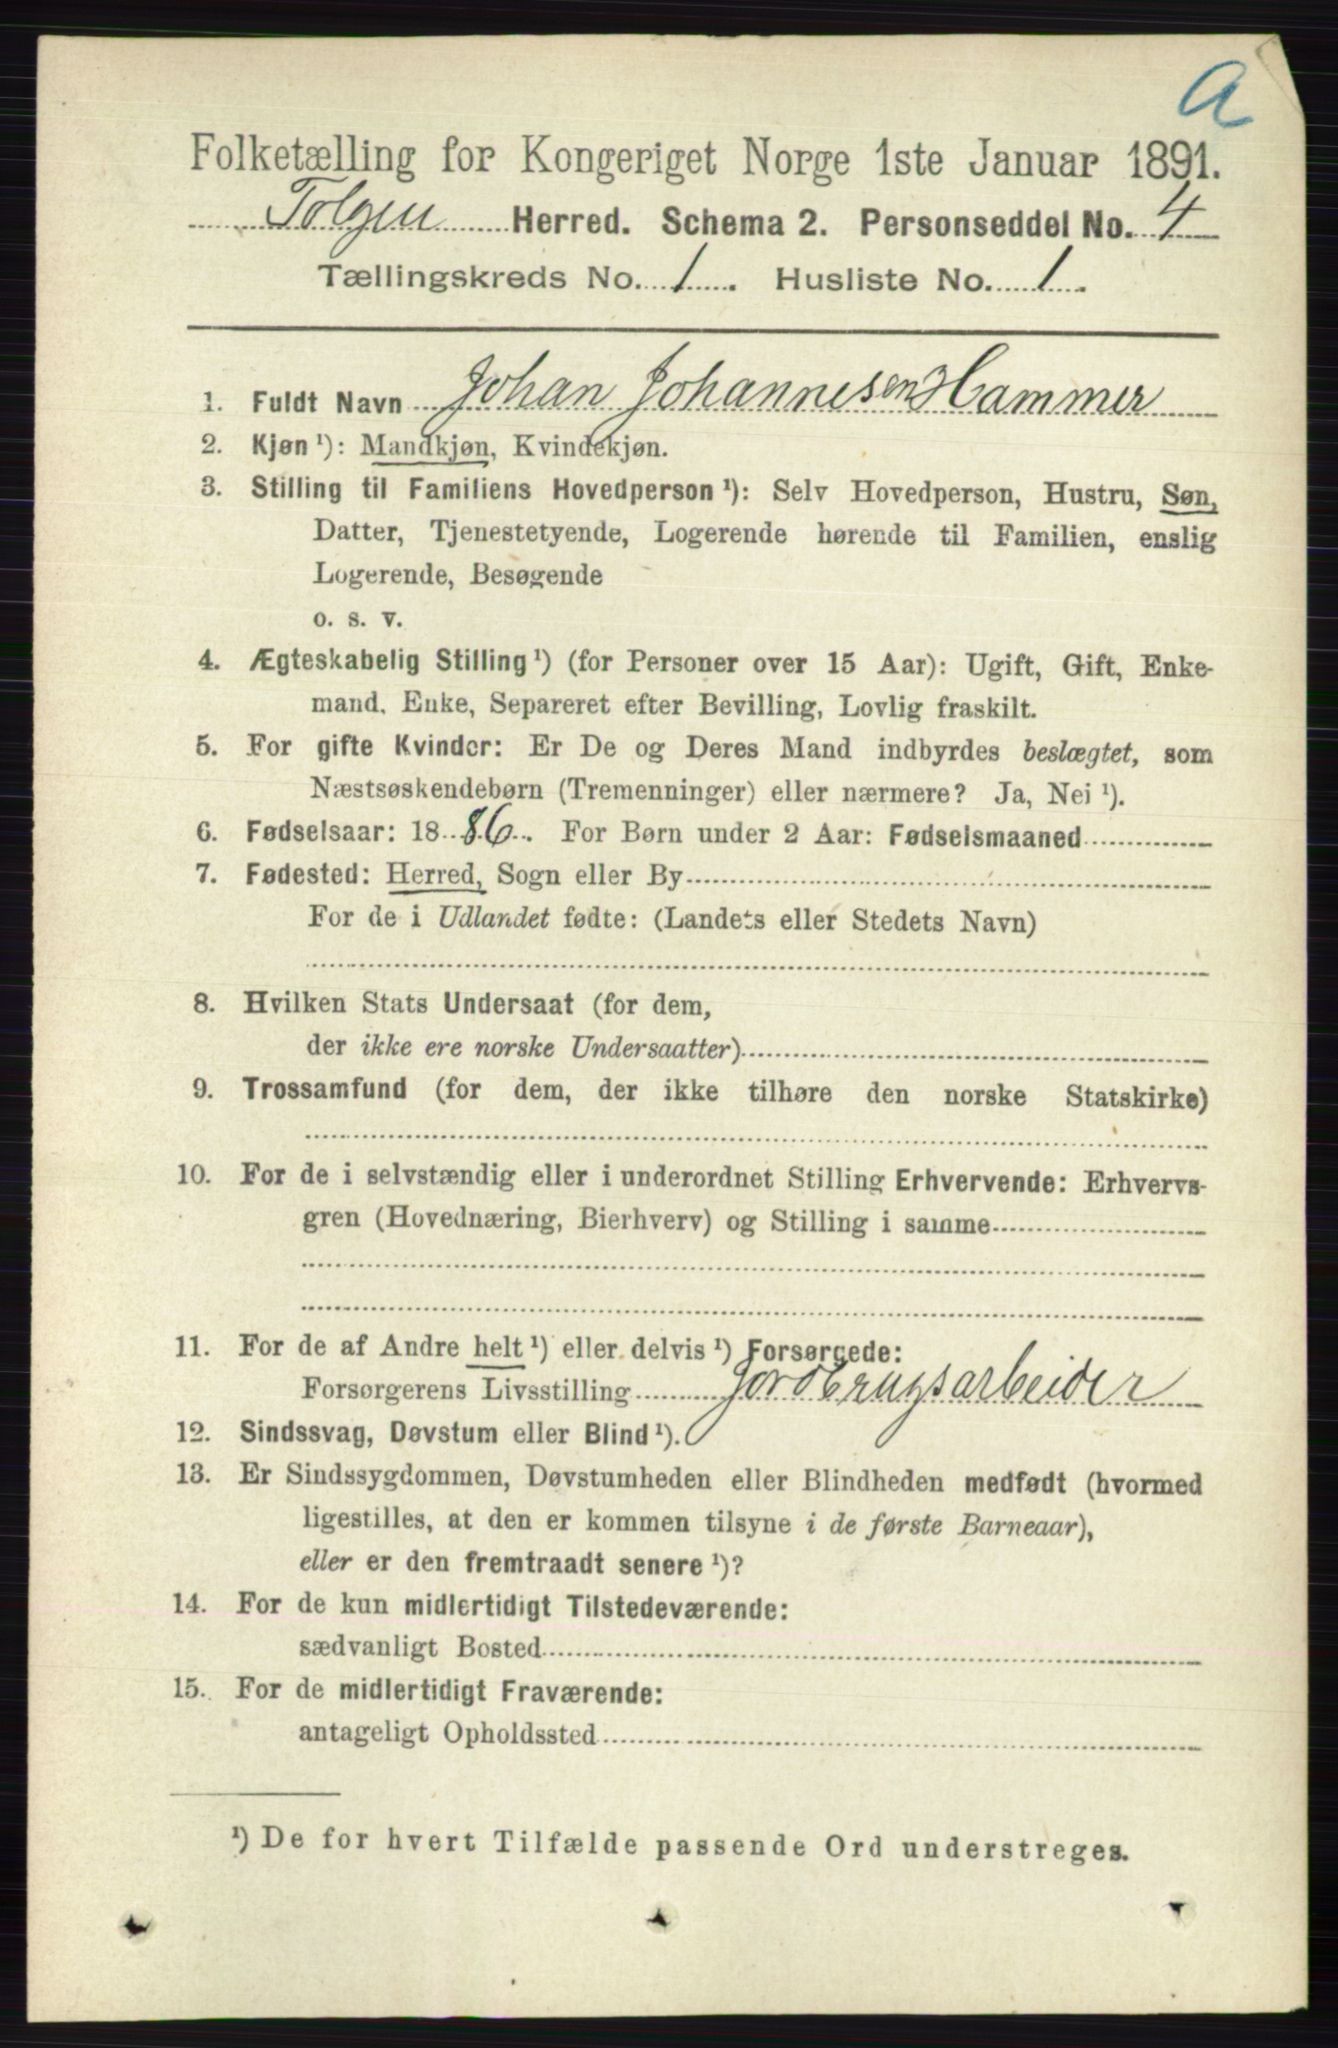 a
Folketælling for Kongeriget Norge 1ste Januar 1891.
Tolgen Herred. Schema 2. Personseddel No. 4
Tællingskreds No. 1. Husliste No. 1.
1. Fuldt Navn Johan Johannesen Hammer
2. Kjøn¹): Mandkjøn, Kvindekjøn.
3. Stilling til Familiens Hovedperson¹): Selv Hovedperson, Hustru, Søn,
Datter, Tjenestetyende, Logerende hørende til Familien, enslig
Logerende, Besøgende
o. s. v.
4. Ægteskabelig Stilling¹) (for Personer over 15 Aar): Ugift, Gift, Enke-
mand, Enke, Separeret efter Bevilling, Lovlig fraskilt.
5. For gifte Kvinder: Er De og Deres Mand indbyrdes beslægtet, som
Næstsøskendebørn (Tremenninger) eller nærmere? Ja, Nei¹).
6. Fødselsaar: 1886. For Børn under 2 Aar: Fødselsmaaned
7. Fødested: Herred, Sogn eller By
For de i Udlandet fødte: (Landets eller Stedets Navn)
8. Hvilken Stats Undersaat (for dem,
der ikke ere norske Undersaatter)
9. Trossamfund (for dem, der ikke tilhøre den norske Statskirke)
10. For de i selvstændig eller i underordnet Stilling Erhvervende: Erhvervs-
gren (Hovednæring, Bierhverv) og Stilling i samme
11. For de af Andre helt¹) eller delvis¹) Forsørgede:
Forsørgerens Livsstilling Jordbrugsarbeider
12. Sindssvag, Døvstum eller Blind¹).
13. Er Sindssygdommen, Døvstumheden eller Blindheden medfødt (hvormed
ligestilles, at den er kommen tilsyne i de første Barneaar),
eller er den fremtraadt senere¹)?
14. For de kun midlertidigt Tilstedeværende:
sædvanligt Bosted
15. For de midlertidigt Fraværende:
antageligt Opholdssted
¹) De for hvert Tilfælde passende Ord understreges.